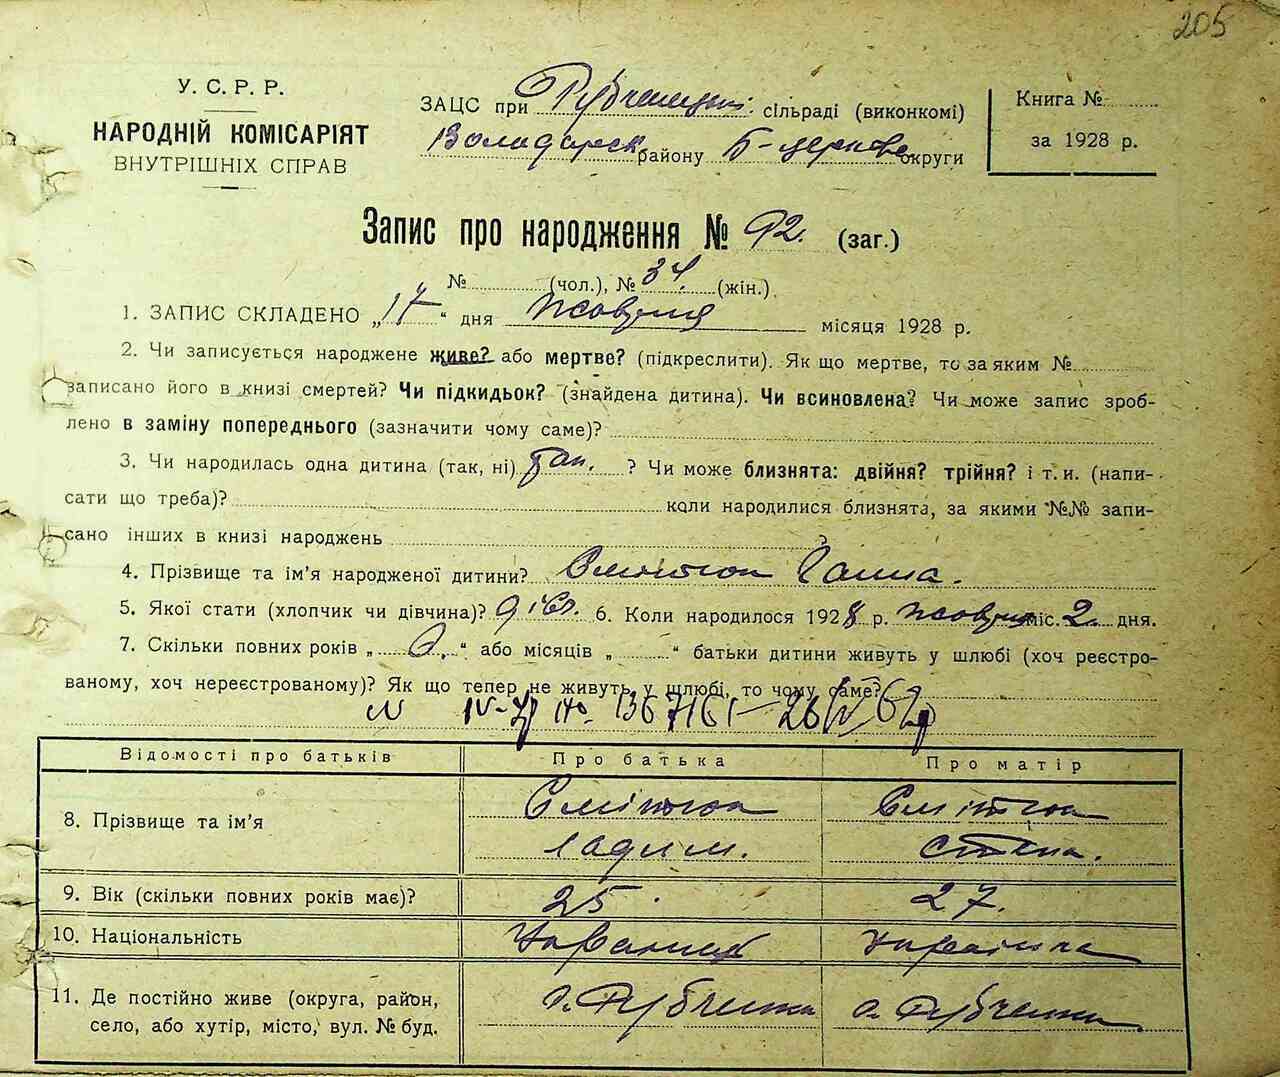 205
У. С. Р. Р.
НАРОДНІЙ КОМІСАРІЯТ
ВНУТРІШНІХ СПРАВ
ЗАЦС при Рубченецькі сільраді (виконкомі)
Володарськ. району Б-церковс округи
Книга №
за 1928 р.
Запис про народження № 92. (заг.)
№ (чол.), № 34. (жін.)
1. ЗАПИС СКЛАДЕНО „17" дня жовтня місяця 1928 р.
2. Чи записується народжене живе? або мертве? (підкреслити). Як що мертве, то за яким №
записано його в книзі смертей? Чи підкидьок? (знайдена дитина). Чи всиновлена? Чи може запис зроб-
лено в заміну попереднього (зазначити чому саме)?
3. Чи народилась одна дитина (так, ні) так. ? Чи може близнята: двійня? трійня? і т. и. (напи-
сати що треба)? коли народилися близнята, за якими №№ запи-
сано інших в книзі народжень ?
4. Прізвище та ім'я народженої дитини? Смітюх Ганна.
5. Якої стати (хлопчик чи дівчина)? дівч. 6. Коли народилося 1928 р. жовтня міс. 2. дня.
7. Скільки повних років „ 6. " або місяців „ " батьки дитини живуть у шлюбі (хоч реєстро-
ваному, хоч нереєстрованому)? Як що тепер не живуть у шлюбі, то чому саме?
Відомості про батьків Про батька Про матір
8. Прізвище та ім'я Смітюх Смітюх
9. Вік (скільки повних років має)? 25 27.
10. Національність Українець Українка
11. Де постійно живе (округа, район, с. Рубченки с. Рубченки
село, або хутір, місто, вул. № буд.